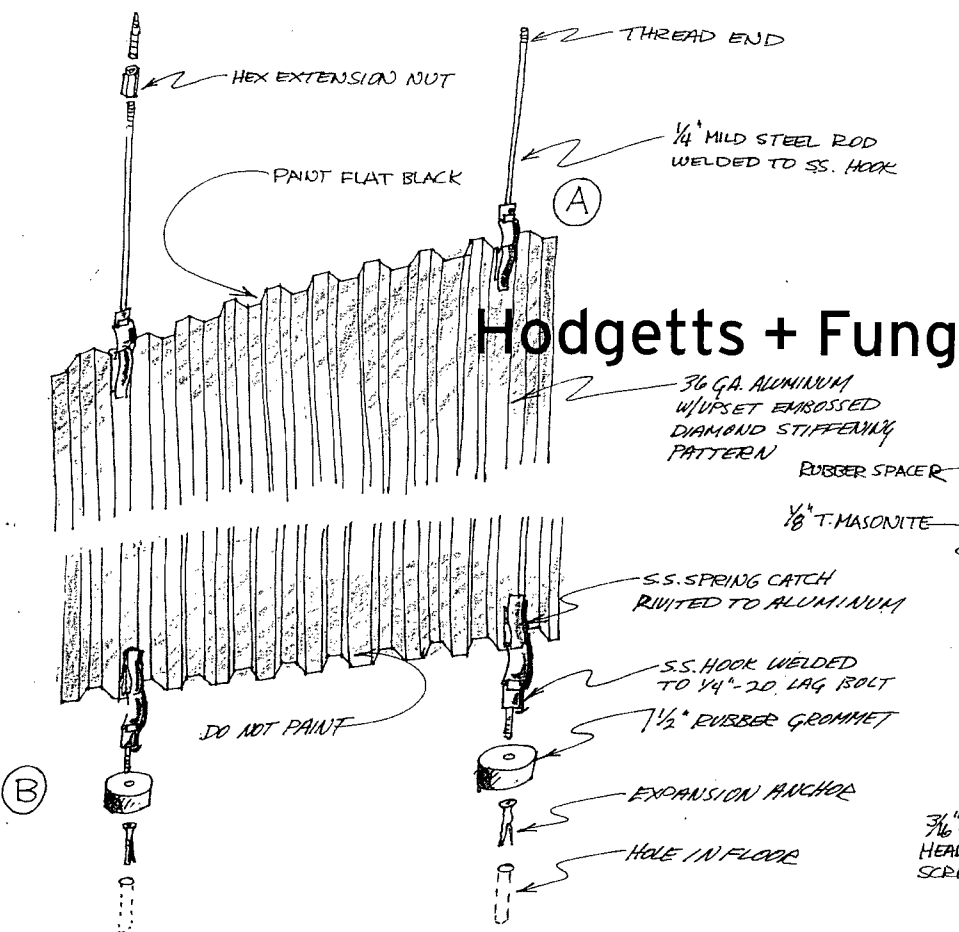 THREAD END
HEX EXTENSION NUT
1/4" MILD STEEL ROD
WELDED TO SS. HOOK
PAINT FLAT BLACK
A
Hodgetts + Fung
36 GA. ALUMINUM
W/UPSET EMBOSSED
DIAMOND STIFFENING
PATTERN
RUBBER SPACER
1/8" T. MASONITE
S.S. SPRING CATCH
RIVITED TO ALUMINUM
S.S. HOOK WELDED
TO 1/4"-20 LAG BOLT
1 1/2" RUBBER GROMMET
DO NOT PAINT
B
EXPANSION ANCHOR
HOLE IN FLOOR
3/16"
HEAD
SCR